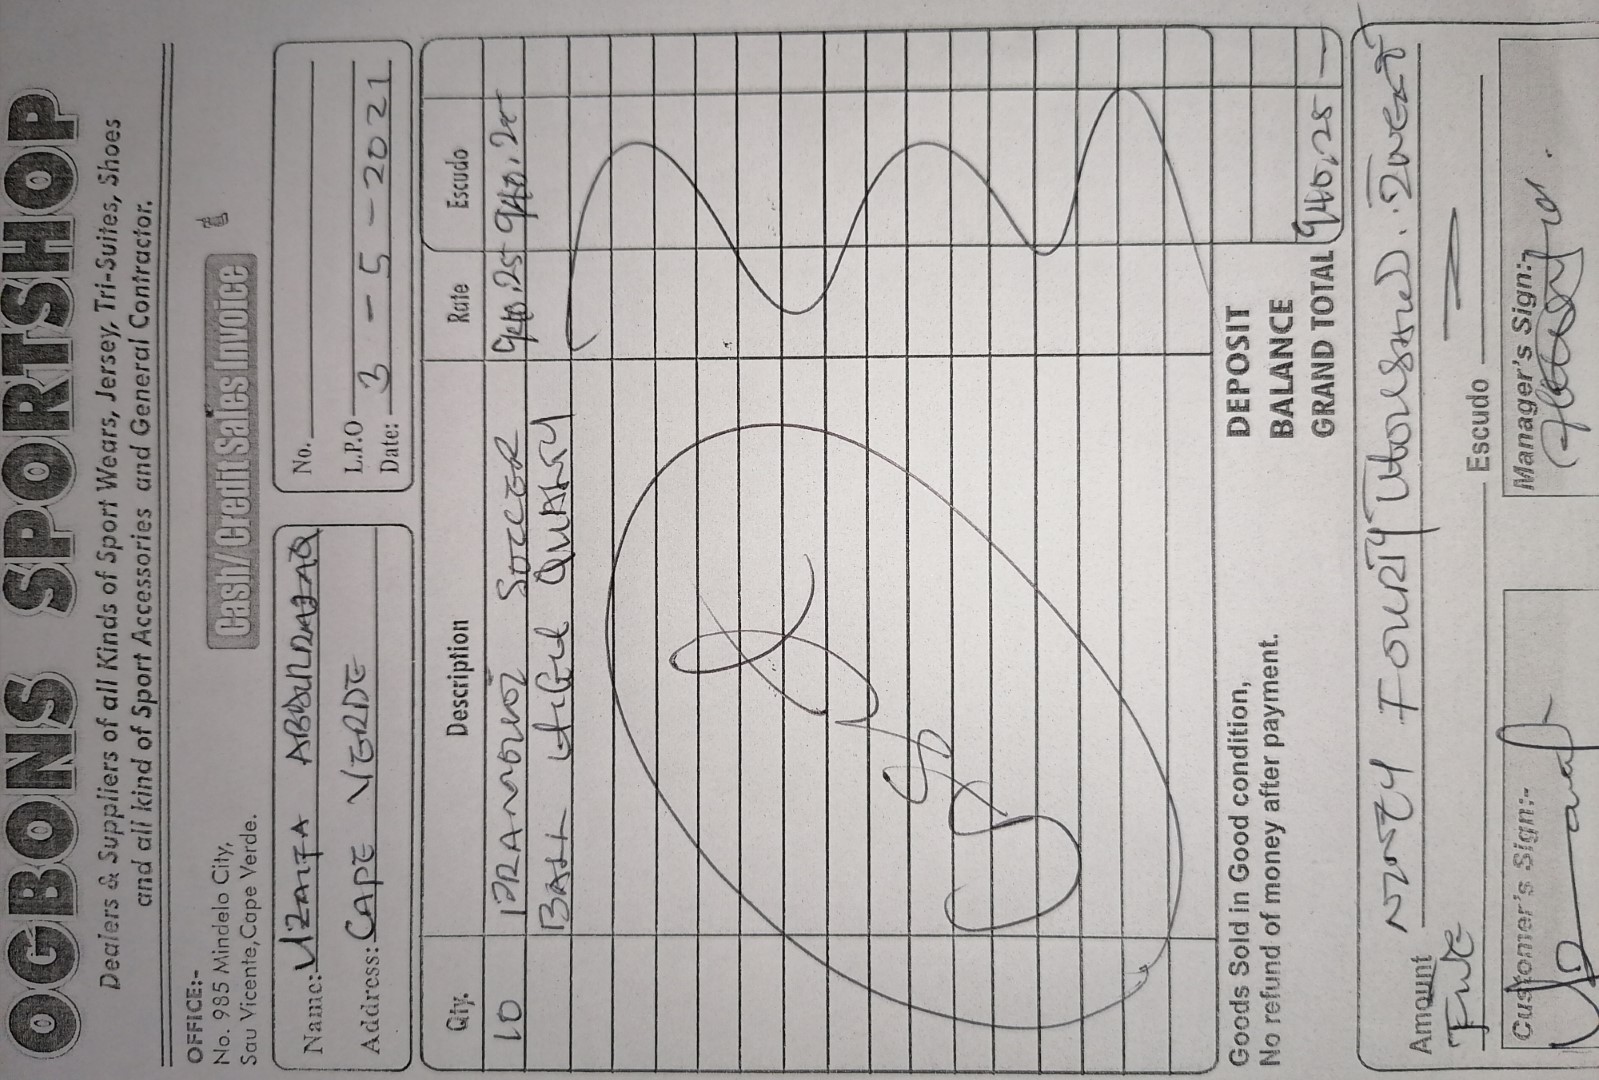 OGBONS SPORTSHOP
Dealers & Suppliers of all Kinds of Sport Wears, Jersey, Tri-Suites, Shoes
and all kind of Sport Accessories and General Contractor.
OFFICE:-
No. 985 Mindelo City,
Sau Vicente,Cape Verde.
Cash/Credit Sales Invoice
Name: UZAIFA ABDULRAZAQ
Address: CAPE VERDE
No.
L.P.O
Date: 3 - 5 - 2021
Qty. Description Rate Escudo
10 SOCCER 940.25 940.25
BALL QUALITY
Goods Sold in Good condition,
No refund of money after payment.
DEPOSIT
BALANCE
GRAND TOTAL 940,25 —
Amount NINTY FOURTY THOUSAND.
FIVE Escudo
Customer's Sign:-
Manager's Sign:-